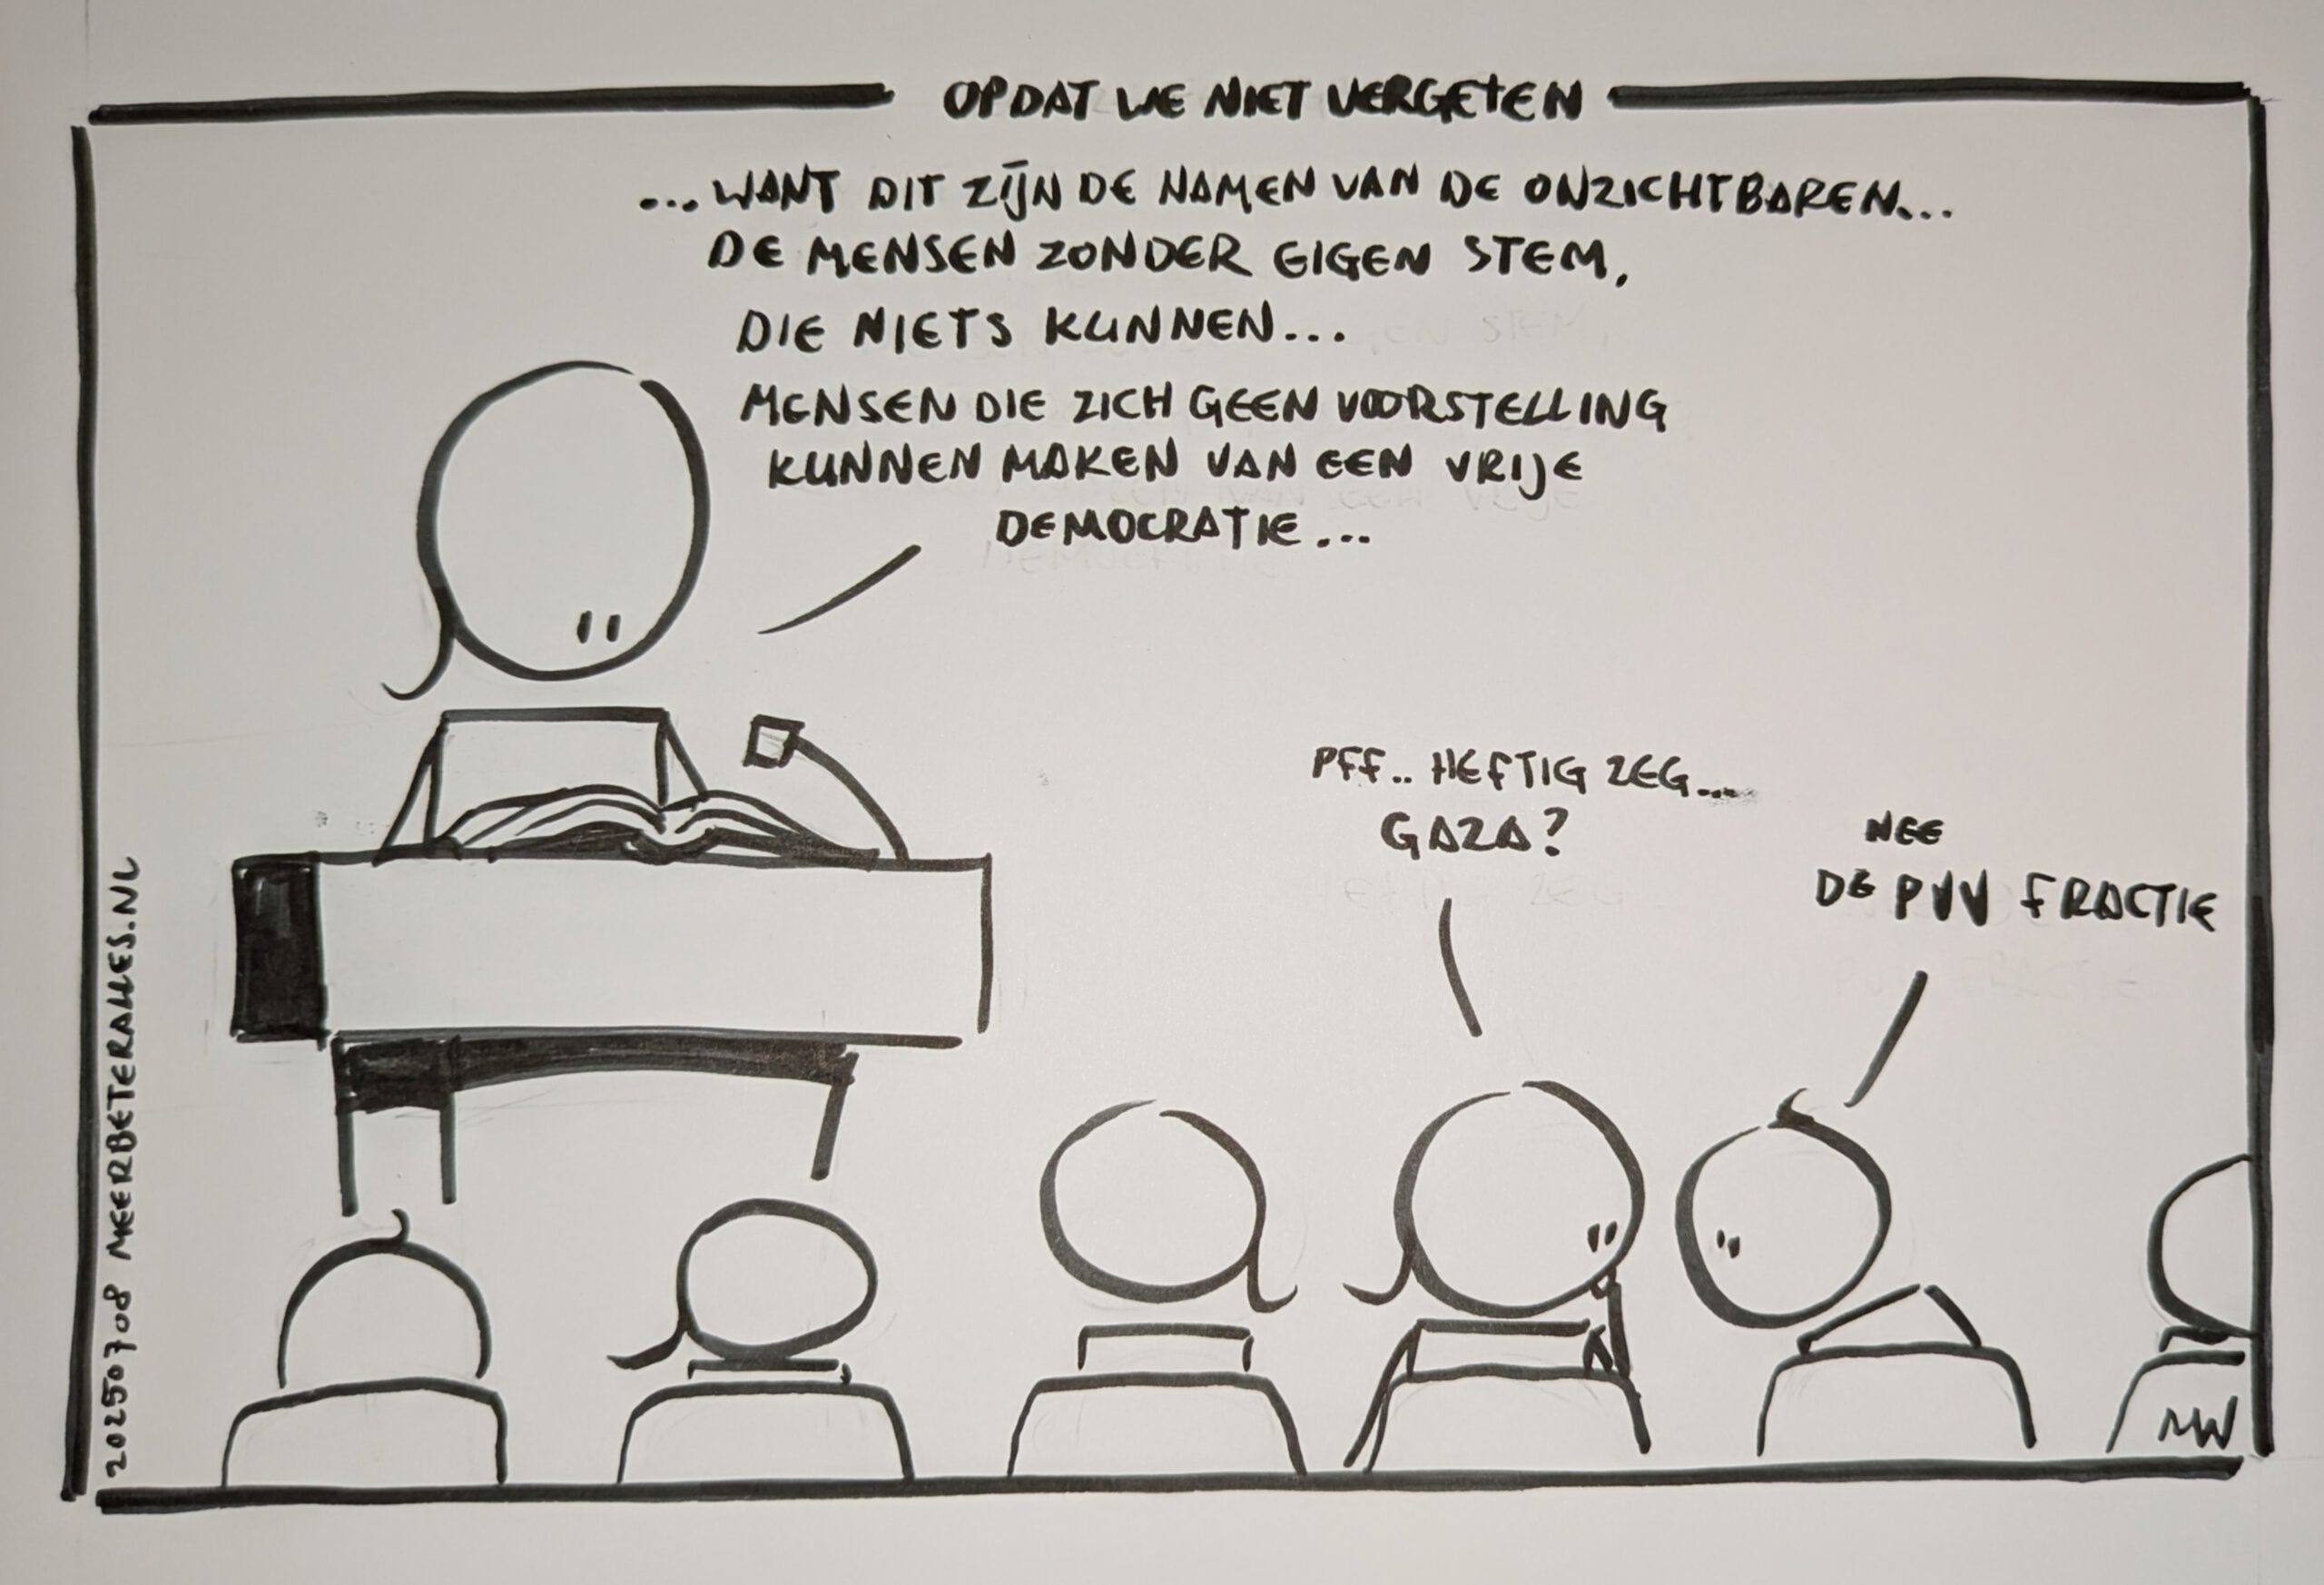 OPDAT WE NIET VERGETEN
...WANT DIT ZIJN DE NAMEN VAN DE ONZICHTBAREN...
DE MENSEN ZONDER EIGEN STEM,
DIE NIETS KUNNEN...
MENSEN DIE ZICH GEEN VOORSTELLING
KUNNEN MAKEN VAN EEN VRIJE
DEMOCRATIE...
PFF.. HEFTIG ZEG...
GAZA?
NEE
DE PVV FRACTIE
20250708 MEERBETERALLES.NL
MW